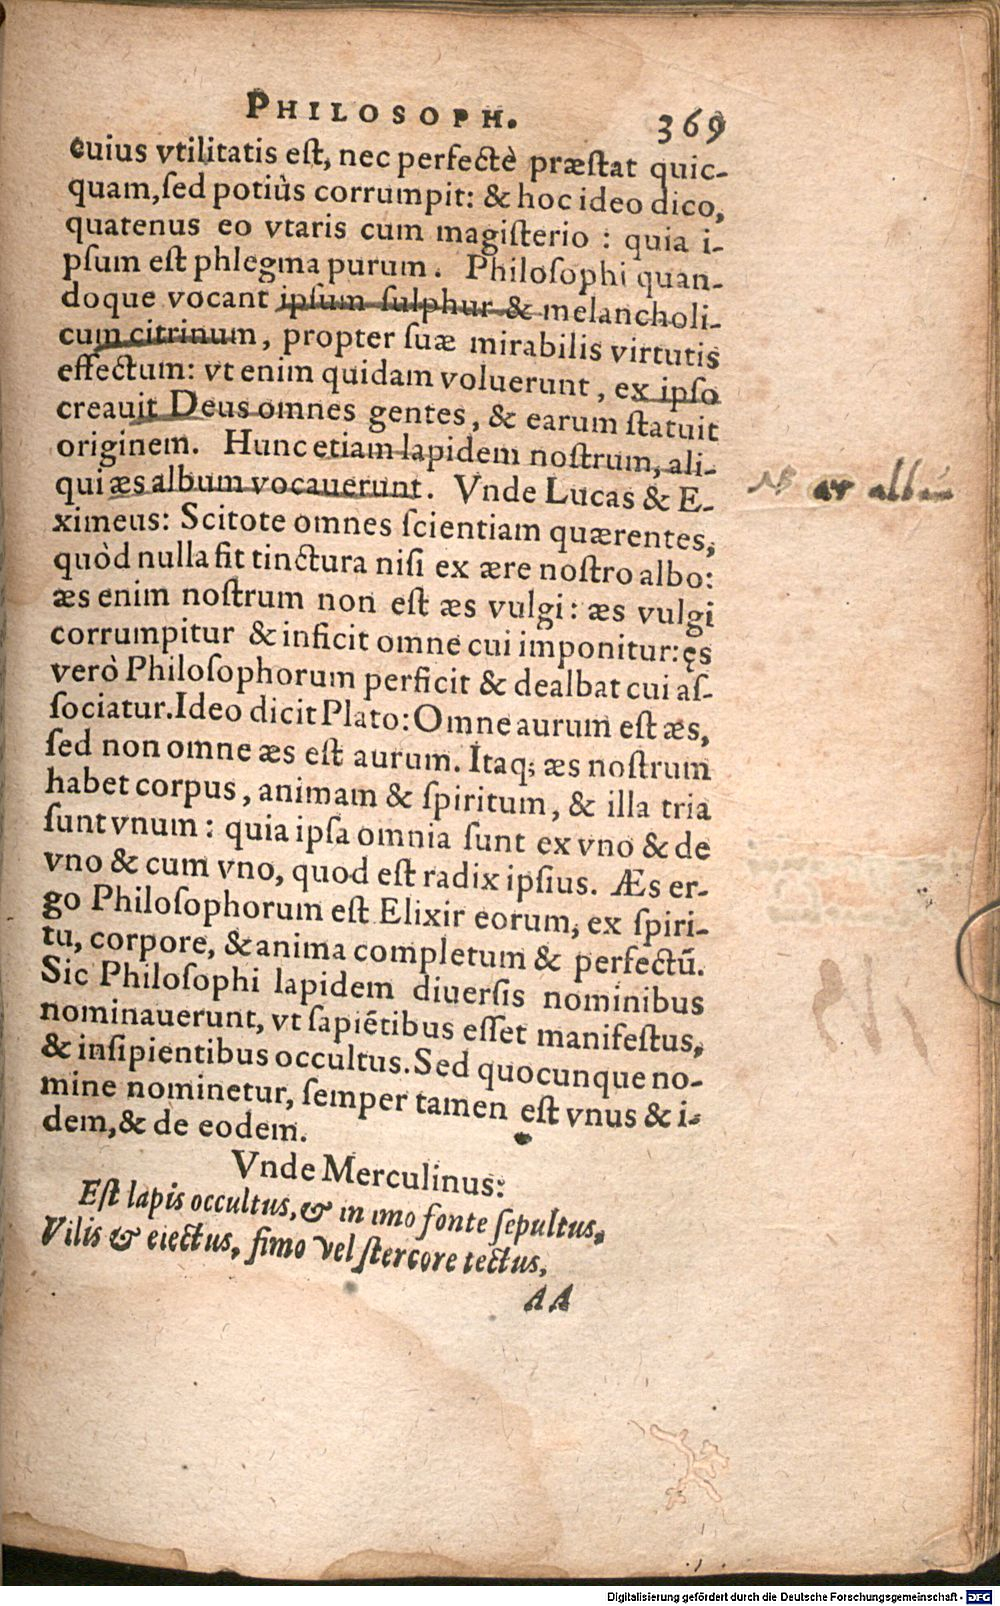 PHILOSOPH. 369
cuius vtilitatis est, nec perfectè præstat quic-
quam, sed potiùs corrumpit: & hoc ideo dico,
quatenus eo vtaris cum magisterio: quia i-
psum est phlegma purum. Philosophi quan-
doque vocant ipsum sulphur & melancholi-
cum citrinum, propter suæ mirabilis virtutis
effectum: vt enim quidam voluerunt, ex ipso
creauit Deus omnes gentes, & earum statuit
originem. Hunc etiam lapidem nostrum, ali-
qui æs album vocauerunt. Vnde Lucas & E-
ximeus: Scitote omnes scientiam quærentes,
quòd nulla fit tinctura nisi ex ære nostro albo:
æs enim nostrum non est æs vulgi: æs vulgi
corrumpitur & inficit omne cui imponitur: ęs
verò Philosophorum perficit & dealbat cui as-
sociatur. Ideo dicit Plato: Omne aurum est æs,
sed non omne æs est aurum. Itaq; æs nostrum
habet corpus, animam & spiritum, & illa tria
sunt vnum: quia ipsa omnia sunt ex vno & de
vno & cum vno, quod est radix ipsius. Æs er-
go Philosophorum est Elixir eorum, ex spiri-
tu, corpore, & anima completum & perfectũ.
Sic Philosophi lapidem diuersis nominibus
nominauerunt, vt sapiẽtibus esset manifestus,
& insipientibus occultus. Sed quocunque no-
mine nominetur, semper tamen est vnus & i-
dem, & de eodem.
Vnde Merculinus:
Est lapis occultus, & in imo fonte sepultus,
Vilis & eiectus, fimo vel stercore tectus,
AA
NB
Digitalisierung gefördert durch die Deutsche Forschungsgemeinschaft - DFG